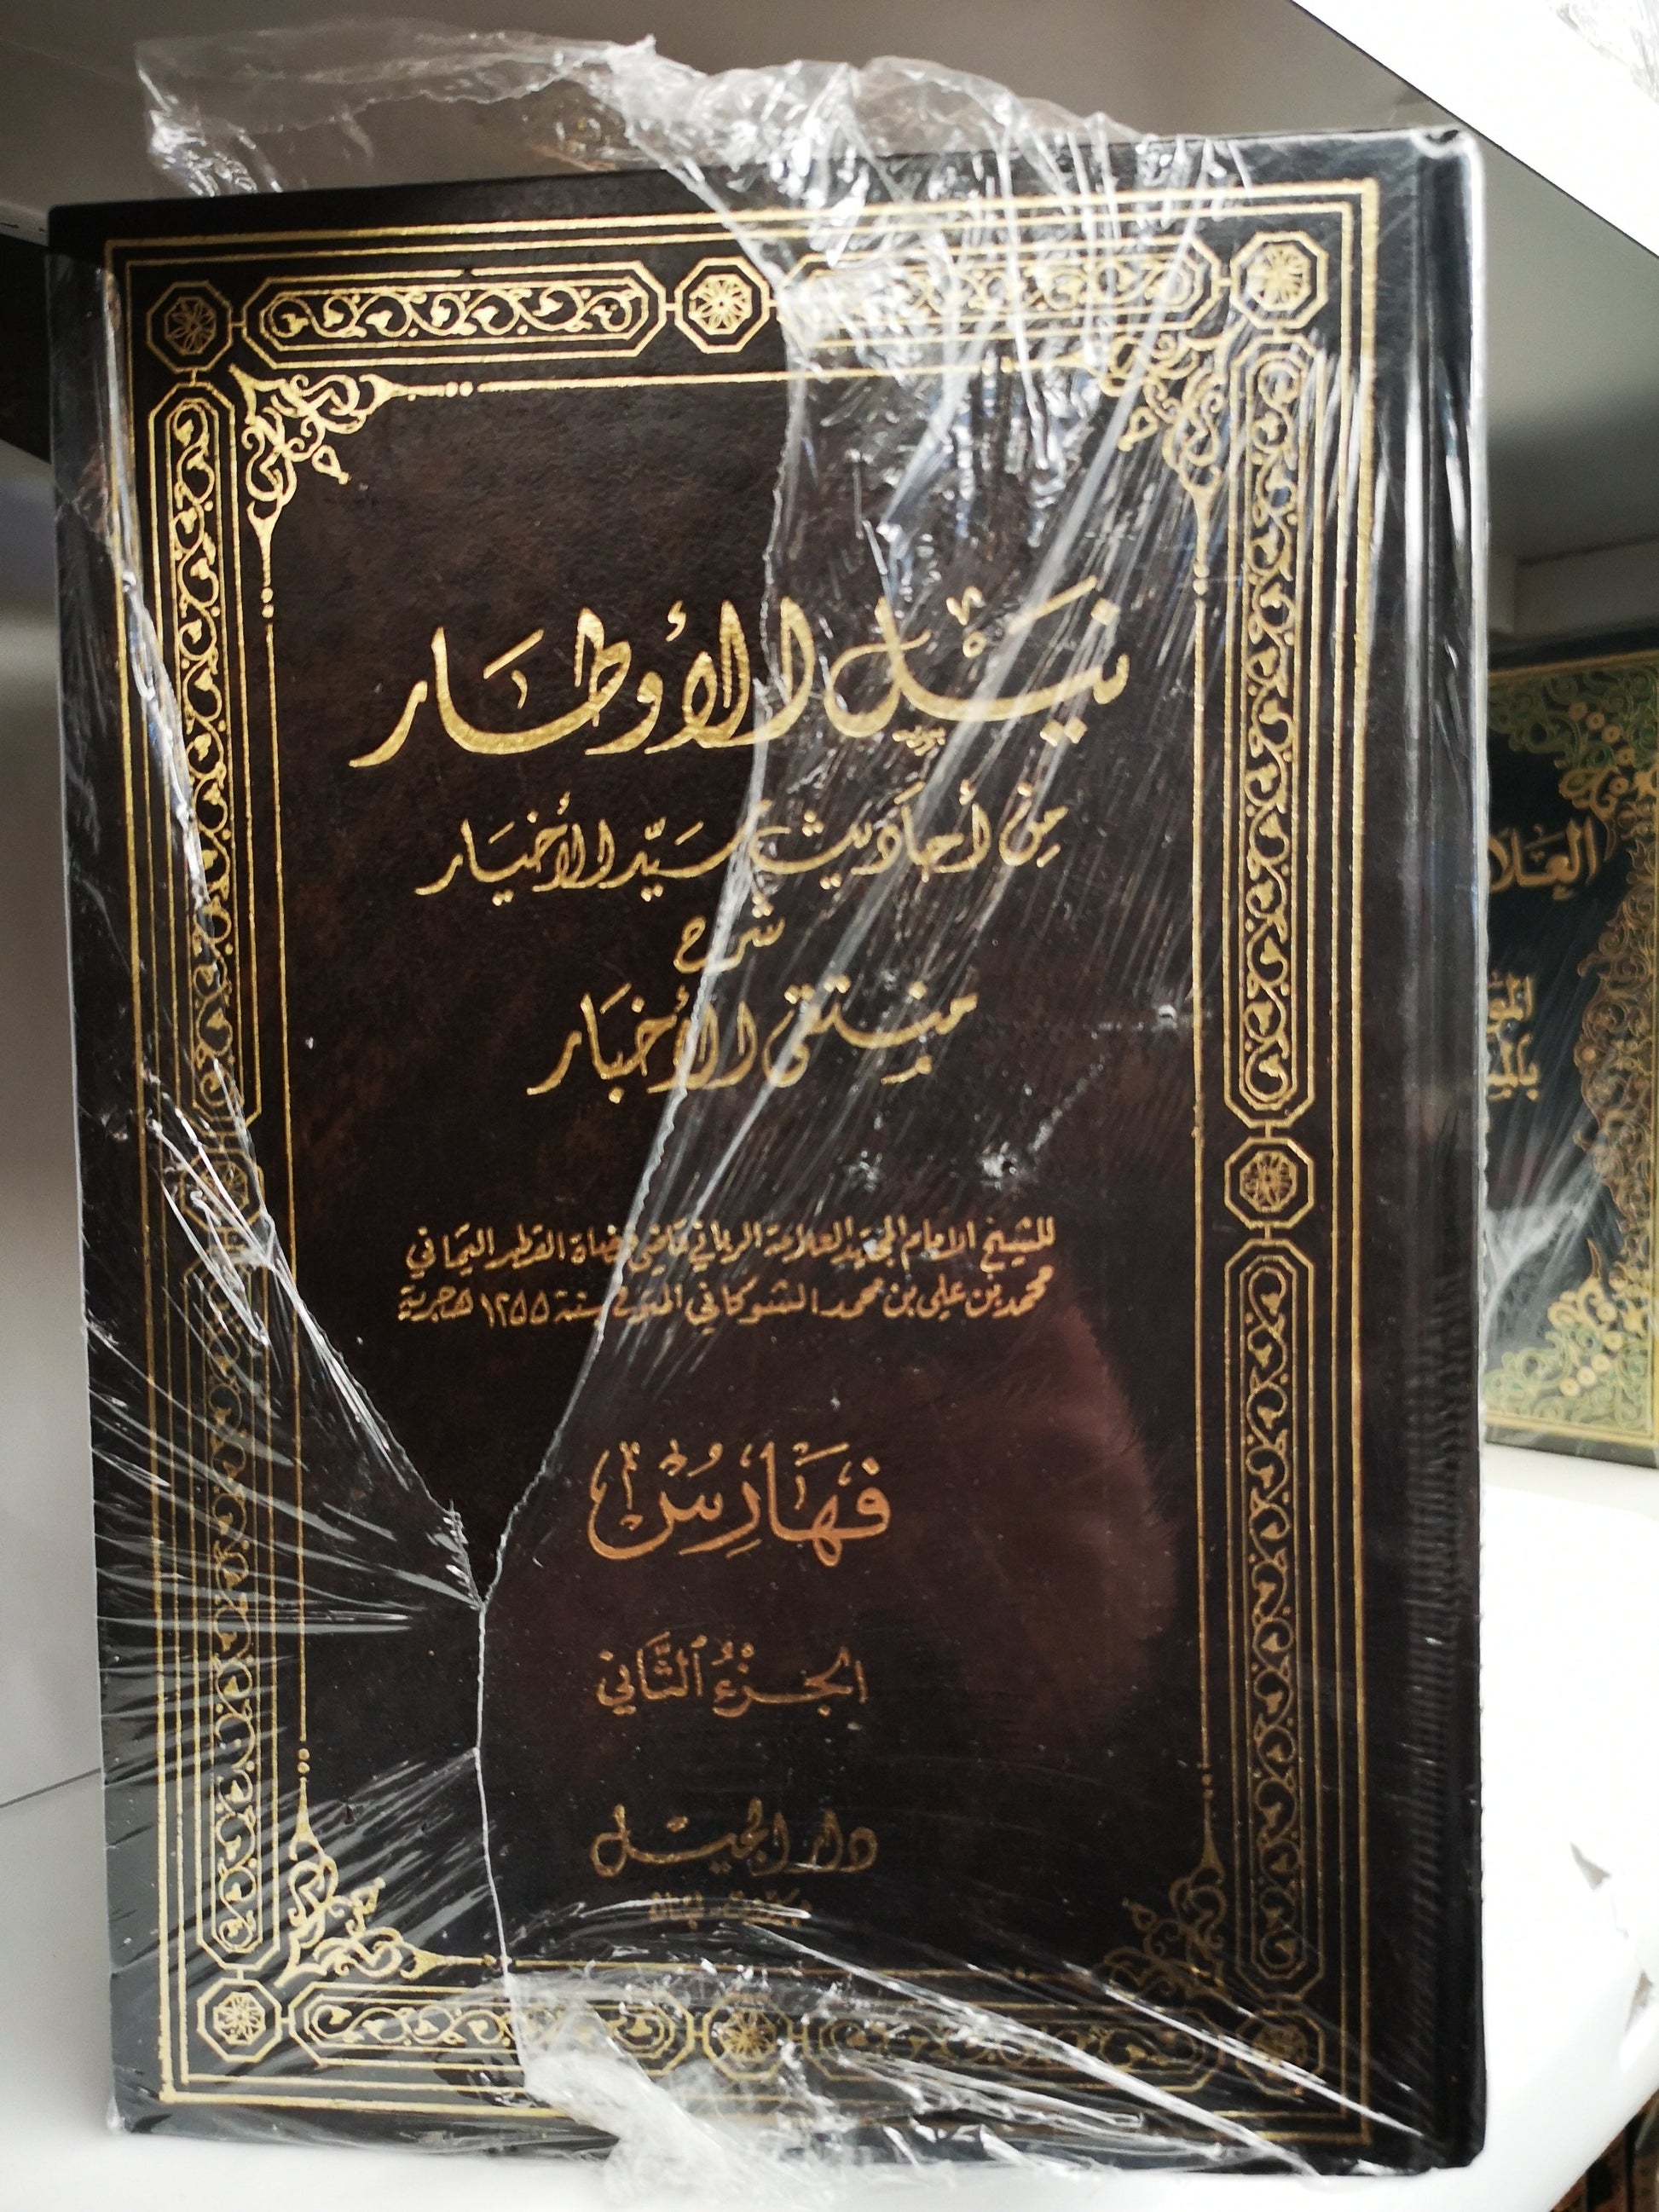 نيل الأوطار
من أحاديث سيد الأخيار
شرح
منتقى الأخبار
للشيخ الإمام المجتهد العلامة الرباني قاضي قضاة القطر اليماني
محمد بن علي بن محمد الشوكاني المتوفى سنة ١٢٥٥ هجرية
فَهَارِسْ
الجُزْءُ الثَّاني
دار الجيل
بيروت - لبنان